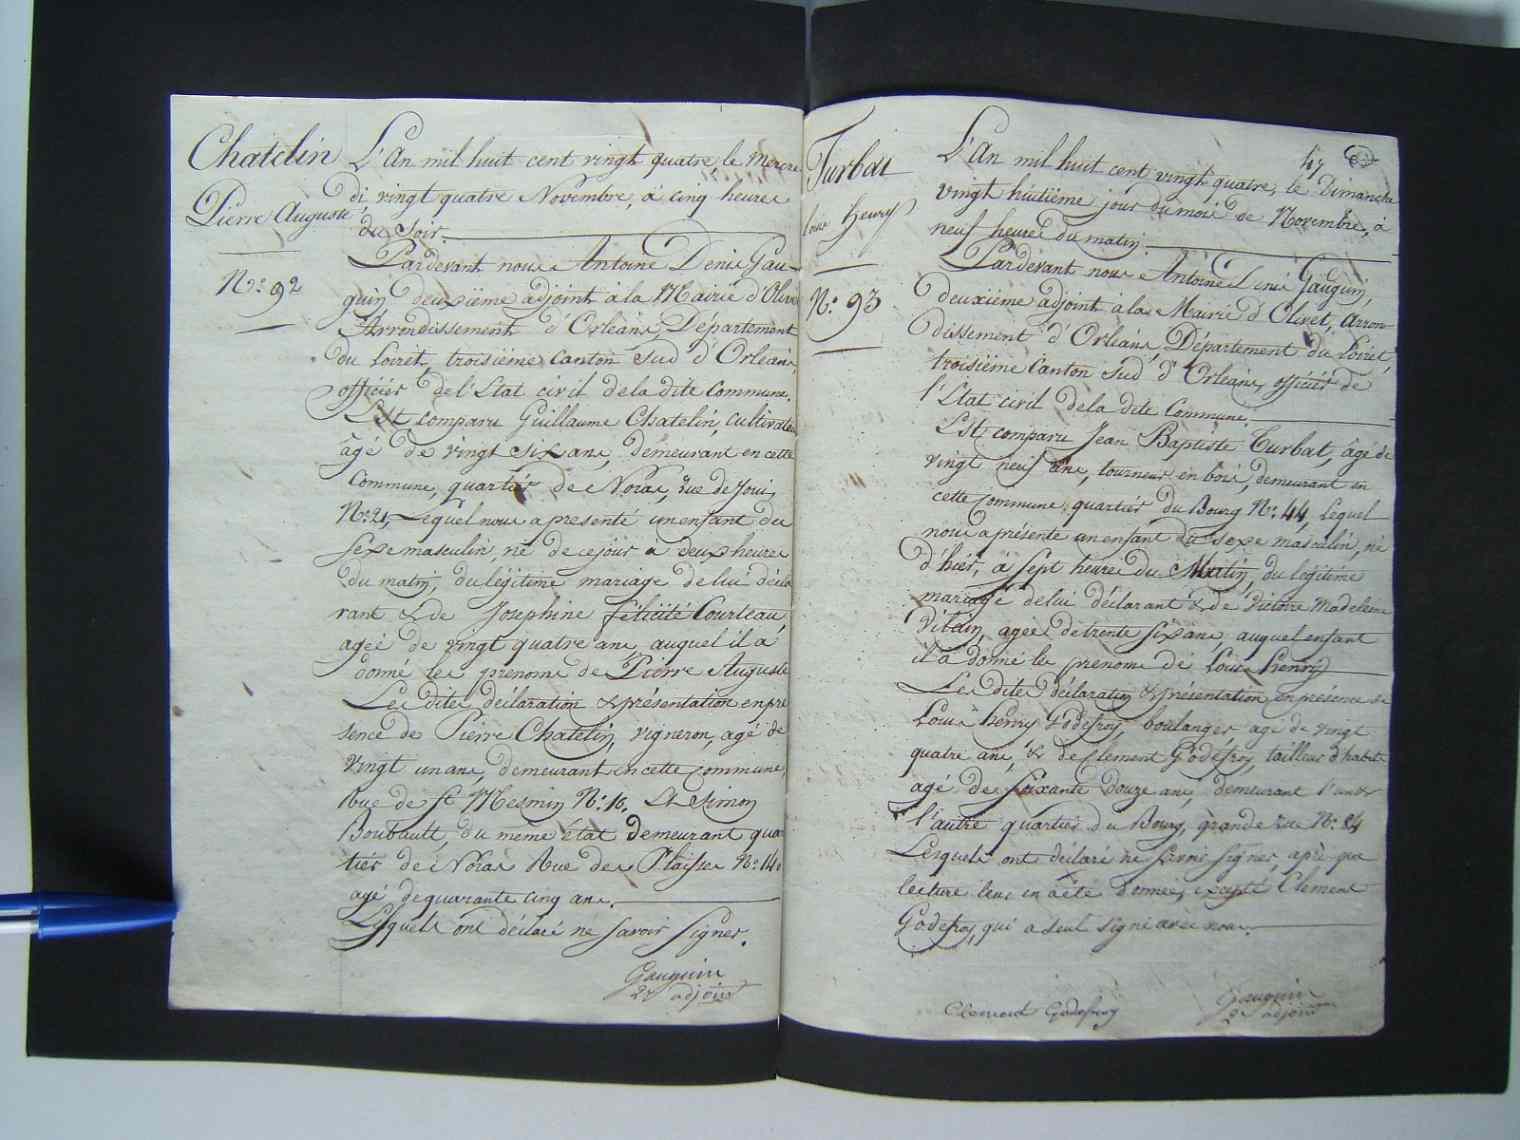 Chatelin
Pierre Auguste
N.° 92
L'An mil huit cent vingt quatre, le Mercre
di, vingt quatre Novembre, à cinq heures
du Soir.
Pardevant nous Antoine Denis Gau-
guin deuxième adjoint à la Mairie d'Olivet
Arrondissement d'Orléans, Département
du Loiret, troisième Canton Sud d'Orléans,
officier de l'Etat civil de la dite Commune.
Est comparu Guillaume Chatelin, cultivateur
âgé de vingt six ans, demeurant en cette
Commune, quartier de Noras, rue de Joui,
N.° 21, Lequel nous a presenté un enfant du
Sexe masculin, né de ce jour à deux heures
du matin, du légitime mariage de lui décla
rant & de Josephine félicité Courteau,
agée de vingt quatre ans, auquel il a
donné les prenoms de Pierre Auguste
Les dites déclaration & présentation en pré
sence de Pierre Chatelin, vigneron, agé de
vingt un ans, demeurant en cette commune,
Rue de St Mesmin N.° 16. Et Simon
Boubault, du même état demeurant quar
tier de Noras Rue de Plaisse N.° 14
agé de quarante cinq ans.
Lesquels ont déclaré ne savoir signer.
Gauguin
2e adjoint
47
Turbat
louis henry
N.° 93
L'An mil huit cent vingt quatre, le Dimanche
vingt huitième jour du mois de Novembre, à
neuf heures du matin
Pardevant nous Antoine Denis Gauguin,
deuxième adjoint à la Mairie d'Olivet, arron-
dissement d'Orléans, Département du Loiret,
troisième Canton Sud d'Orléans, officier de
l'Etat civil de la dite Commune.
Est comparu Jean Baptiste Turbat, âgé de
vingt neuf ans, tourneur en bois, demeurant en
cette Commune, quartier du Bourg N.° 44, Lequel
nous a présenté un enfant du Sexe masculin, né
d'hier, à sept heures du Matin, du légitime
mariage de lui déclarant & de Victoire Madeleine
Vilain, agée de trente six ans, auquel enfant
il a donné les prenoms de Louis henry
Les dites déclaration & présentation en présence de
Louis henry Godefroy, boulanger agé de vingt
quatre ans, & de Clement Godefroy, tailleur d'habits
agé de soixante douze ans, demeurant l'un &
l'autre quartier du Bourg, grande rue N.° 84
Lesquels ont déclaré ne savoir signer, après que
lecture leur en a été donnée, excepté Clement
Godefroy, qui a seul signé avec nous.
Clement Godefroy
Gauguin
2e adjoint